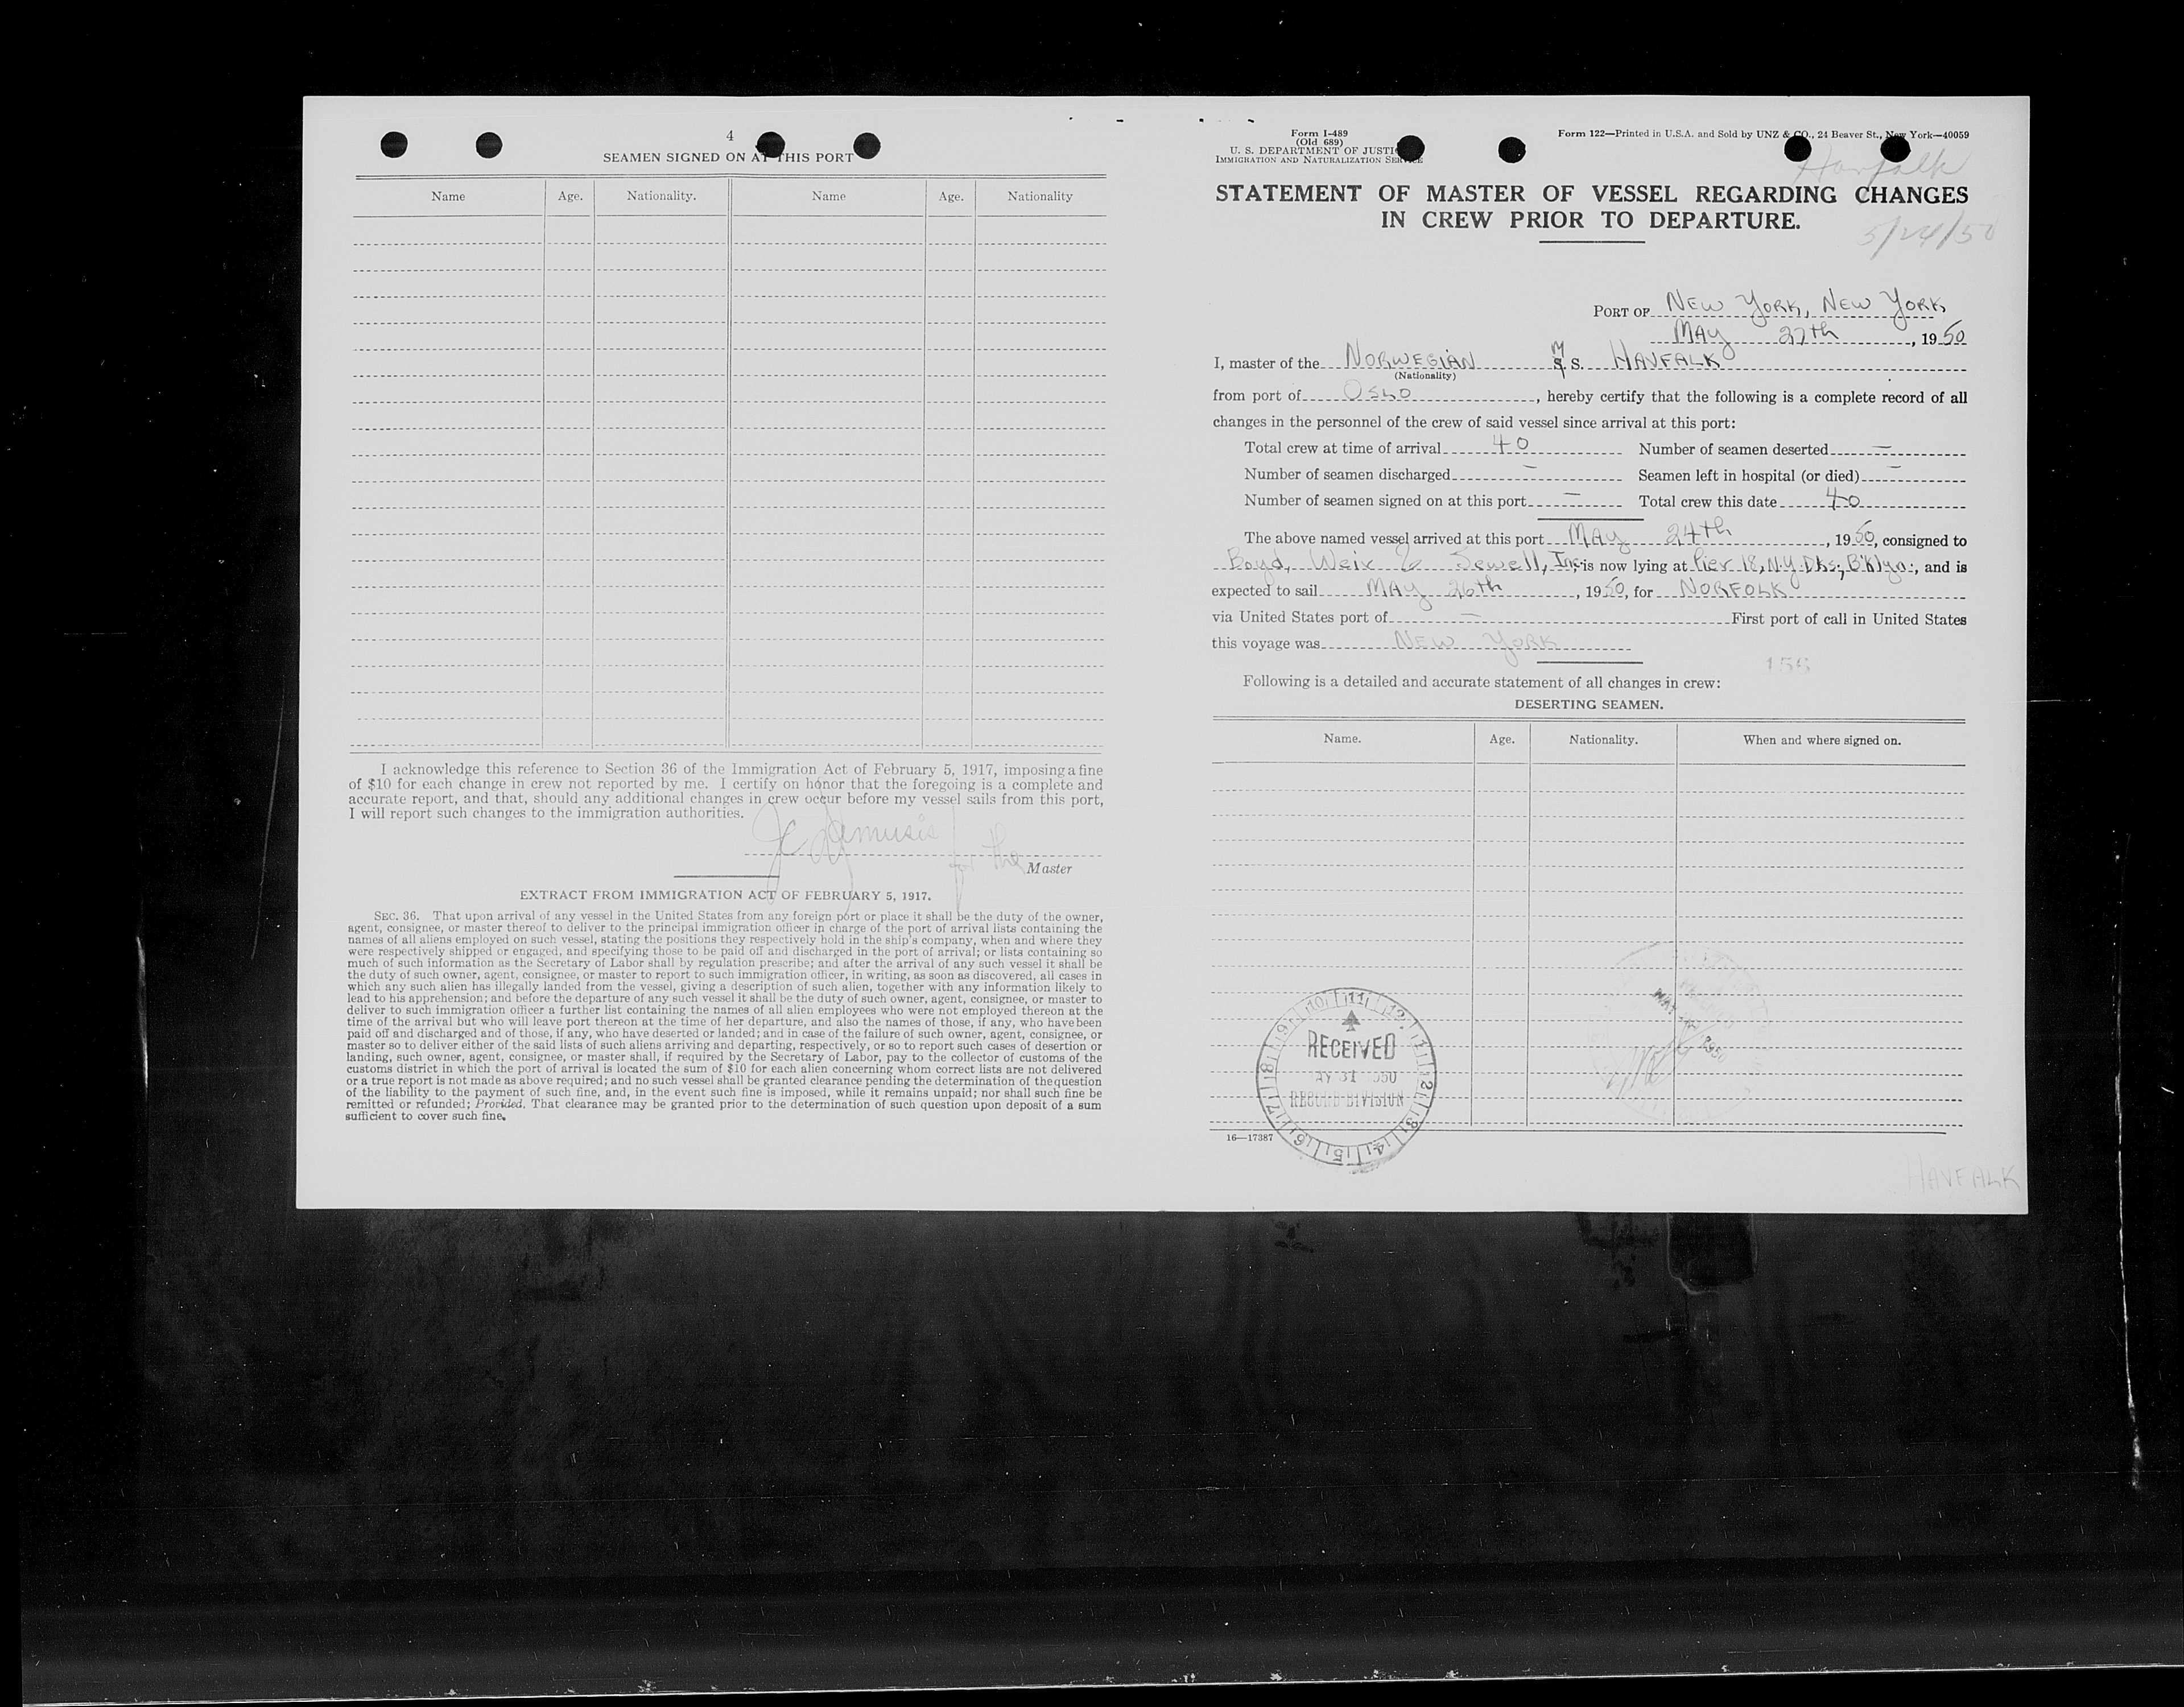 4
SEAMEN SIGNED ON AT THIS PORT
Name Age. Nationality. Name Age. Nationality
I acknowledge this reference to Section 36 of the Immigration Act of February 5, 1917, imposing a fine
of $10 for each change in crew not reported by me. I certify on honor that the foregoing is a complete and
accurate report, and that, should any additional changes in crew occur before my vessel sails from this port,
I will report such changes to the immigration authorities.
for the Master
EXTRACT FROM IMMIGRATION ACT OF FEBRUARY 5, 1917.
SEC. 36. That upon arrival of any vessel in the United States from any foreign port or place it shall be the duty of the owner,
agent, consignee, or master thereof to deliver to the principal immigration officer in charge of the port of arrival lists containing the
names of all aliens employed on such vessel, stating the positions they respectively hold in the ship's company, when and where they
were respectively shipped or engaged, and specifying those to be paid off and discharged in the port of arrival; or lists containing so
much of such information as the Secretary of Labor shall by regulation prescribe; and after the arrival of any such vessel it shall be
the duty of such owner, agent, consignee, or master to report to such immigration officer, in writing, as soon as discovered, all cases in
which any such alien has illegally landed from the vessel, giving a description of such alien, together with any information likely to
lead to his apprehension; and before the departure of any such vessel it shall be the duty of such owner, agent, consignee, or master to
deliver to such immigration officer a further list containing the names of all alien employees who were not employed thereon at the
time of the arrival but who will leave port thereon at the time of her departure, and also the names of those, if any, who have been
paid off and discharged and of those, if any, who have deserted or landed; and in case of the failure of such owner, agent, consignee, or
master so to deliver either of the said lists of such aliens arriving and departing, respectively, or so to report such cases of desertion or
landing, such owner, agent, consignee, or master shall, if required by the Secretary of Labor, pay to the collector of customs of the
customs district in which the port of arrival is located the sum of $10 for each alien concerning whom correct lists are not delivered
or a true report is not made as above required; and no such vessel shall be granted clearance pending the determination of the question
of the liability to the payment of such fine, and, in the event such fine is imposed, while it remains unpaid; nor shall such fine be
remitted or refunded; Provided, That clearance may be granted prior to the determination of such question upon deposit of a sum
sufficient to cover such fine.
Form I-489
(Old 689)
U. S. DEPARTMENT OF JUSTICE
IMMIGRATION AND NATURALIZATION SERVICE
Form 122—Printed in U.S.A. and Sold by UNZ & CO., 24 Beaver St., New York—40059
Havfalk
STATEMENT OF MASTER OF VESSEL REGARDING CHANGES
IN CREW PRIOR TO DEPARTURE.
5/24/50
PORT OF NEW YORK, NEW YORK
MAY 27th, 1950
I, master of the NORWEGIAN M S. HAVFALK
(Nationality)
from port of OSLO, hereby certify that the following is a complete record of all
changes in the personnel of the crew of said vessel since arrival at this port:
Total crew at time of arrival 40 Number of seamen deserted —
Number of seamen discharged — Seamen left in hospital (or died) —
Number of seamen signed on at this port — Total crew this date 40
The above named vessel arrived at this port MAY 24th, 1950, consigned to
Boyd, Weir & Sewell, Inc; is now lying at Pier 18, N.Y. Dks; Bklyn:, and is
expected to sail MAY 26th, 1950, for NORFOLK
via United States port of — First port of call in United States
this voyage was NEW YORK
156
Following is a detailed and accurate statement of all changes in crew:
DESERTING SEAMEN.
Name. Age. Nationality. When and where signed on.
RECEIVED
RECORD DIVISION
16—17387
HAVFALK